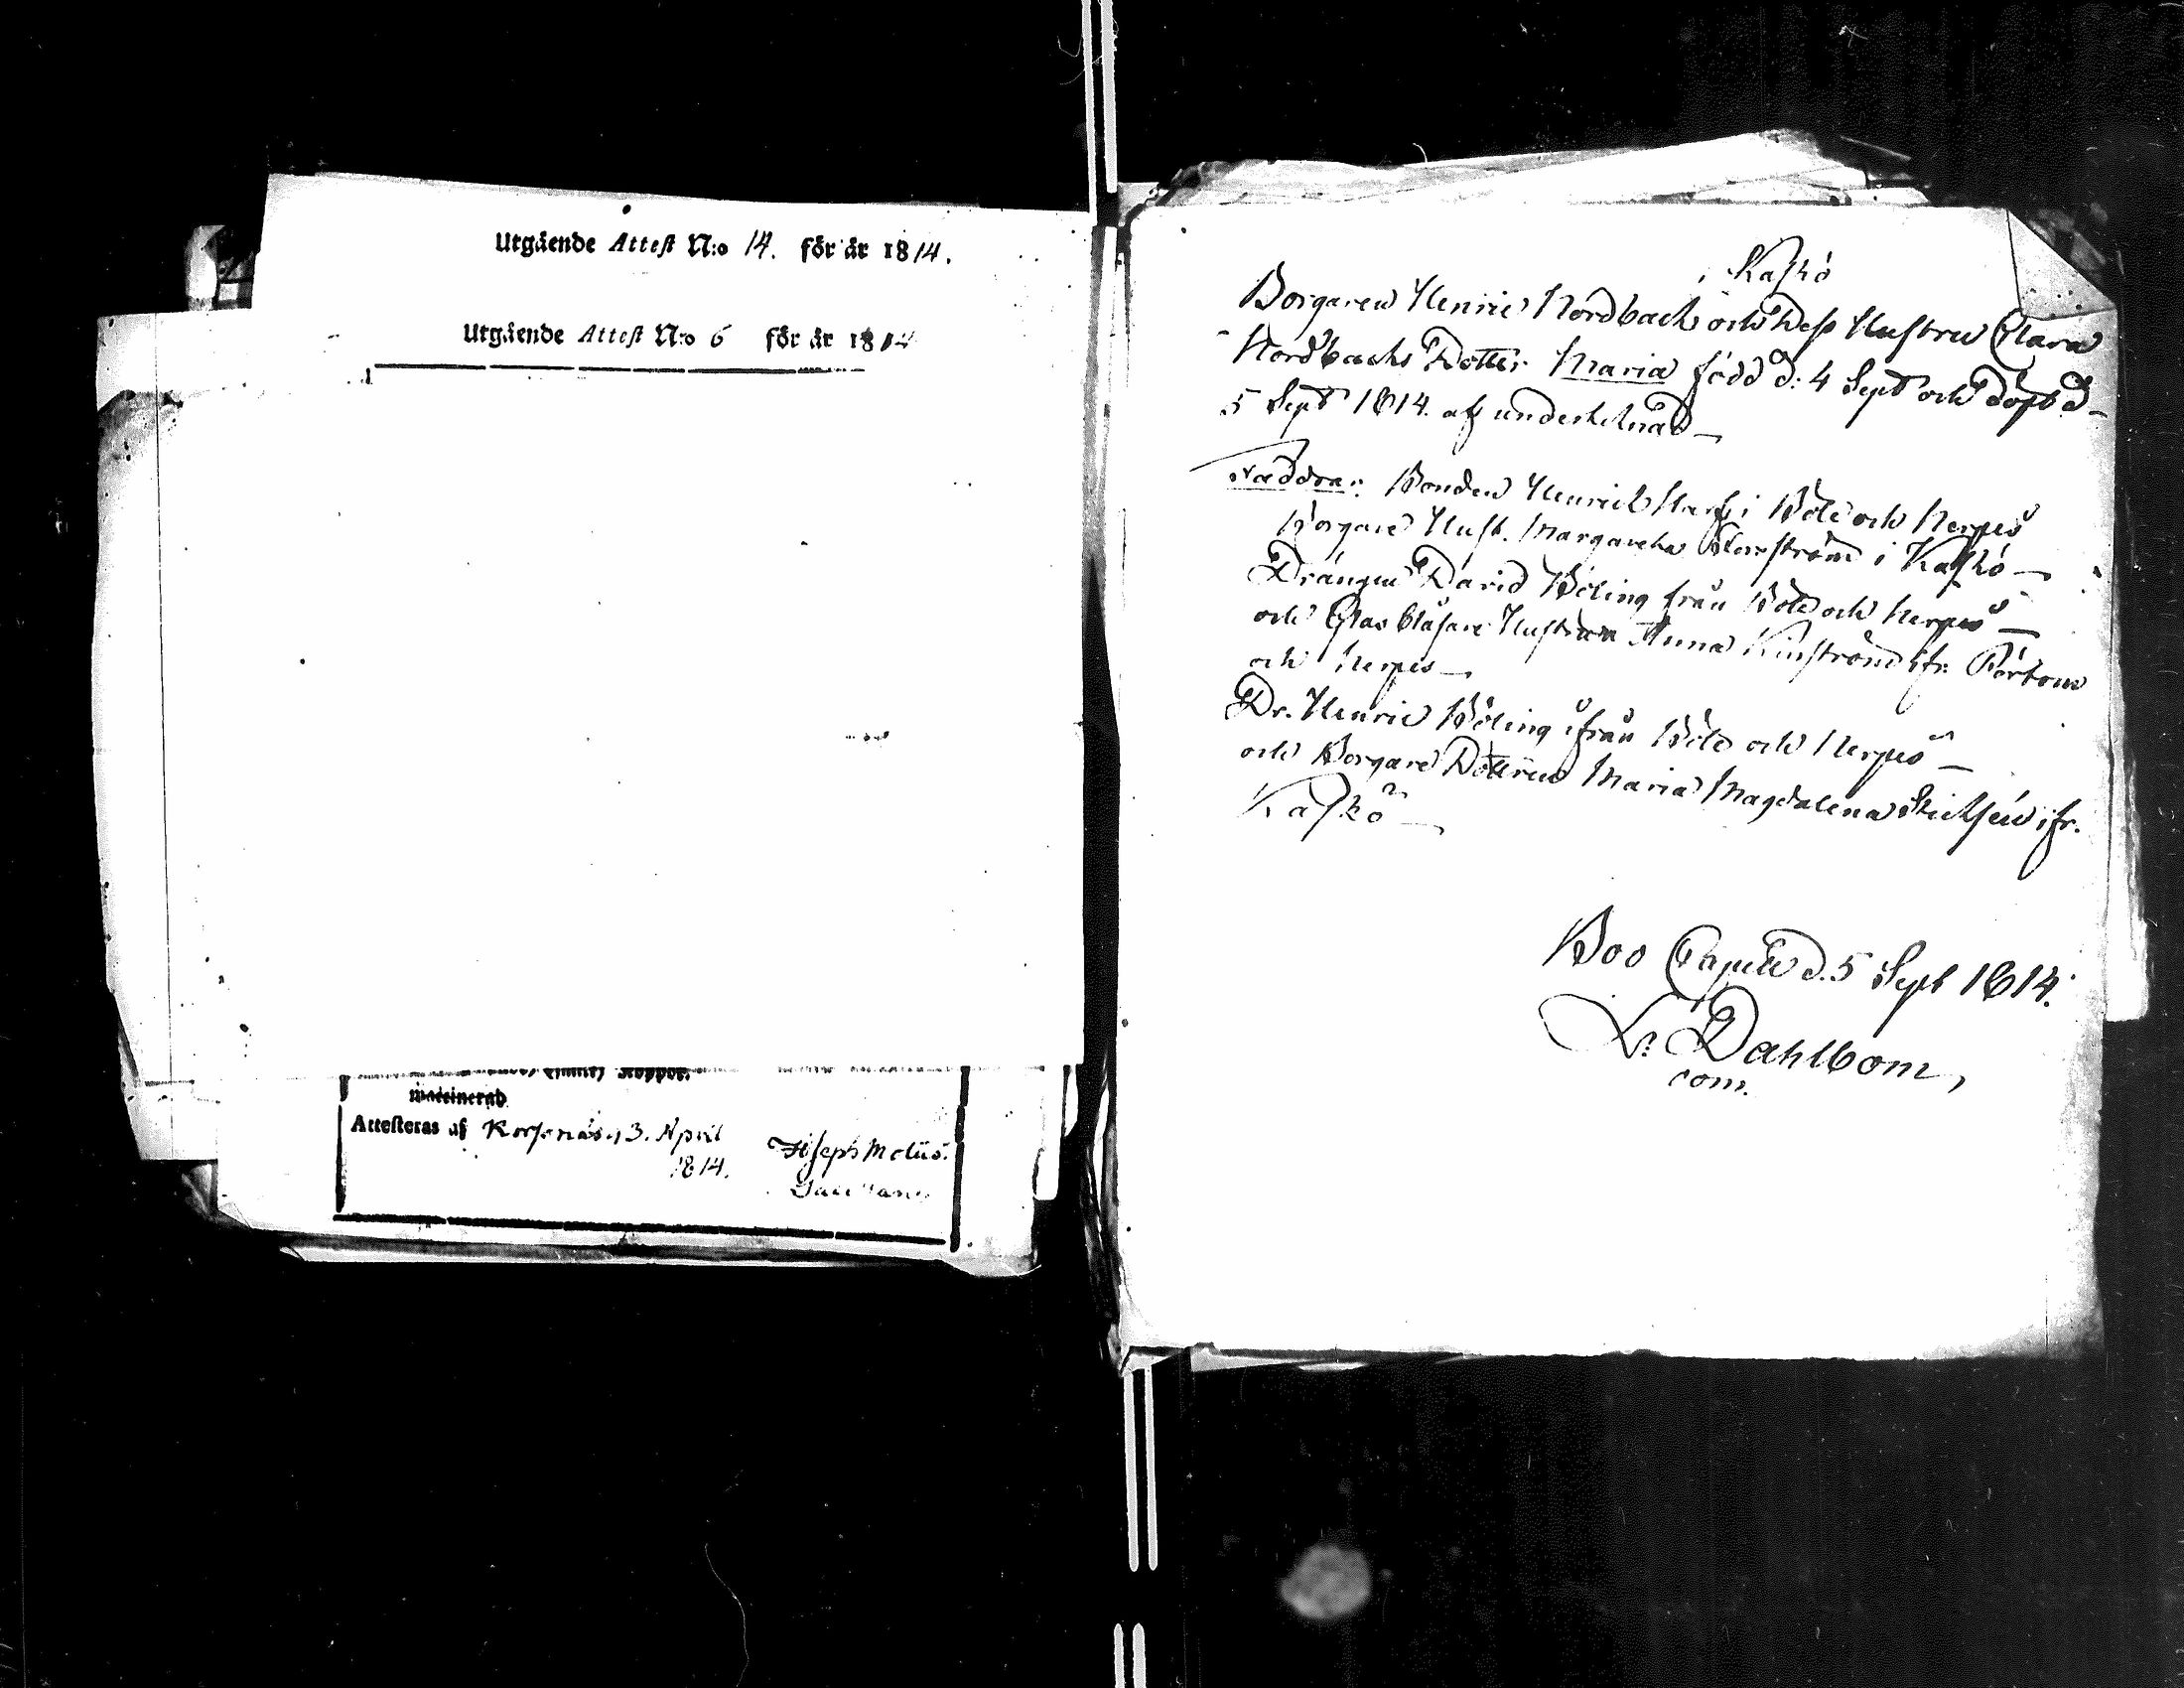 Utgående Attest N:o 14. för år 1814.
Utgående Attest N:o 6 för år 1814
Koppor.
vaccinerad
Attesteras af Korsnäs, 3. April
1814.
Joseph
i Kaskö
Borgaren Henric Nordback och dess Hustru Clara
Nordbacks Dotter Maria född d: 4 Sept och döpt d
5 Sept 1814. af undertecknad
Faddrar: Bonden Henrich i Böle och Nerpes
Borgare Hust. Margareta i Kaskö
Drängen David Böling från Böle och Nerpes
och Glasblåsare Hustrun Anna ifr. Pörtom
och Nerpes
Dr. Henric Böling ifrån Böle och Nerpes
och Borgare Dottren Maria Magdalena ifr.
Kaskö
Boo Capell d. 5 Sept 1814.
Dahlbom,
com.